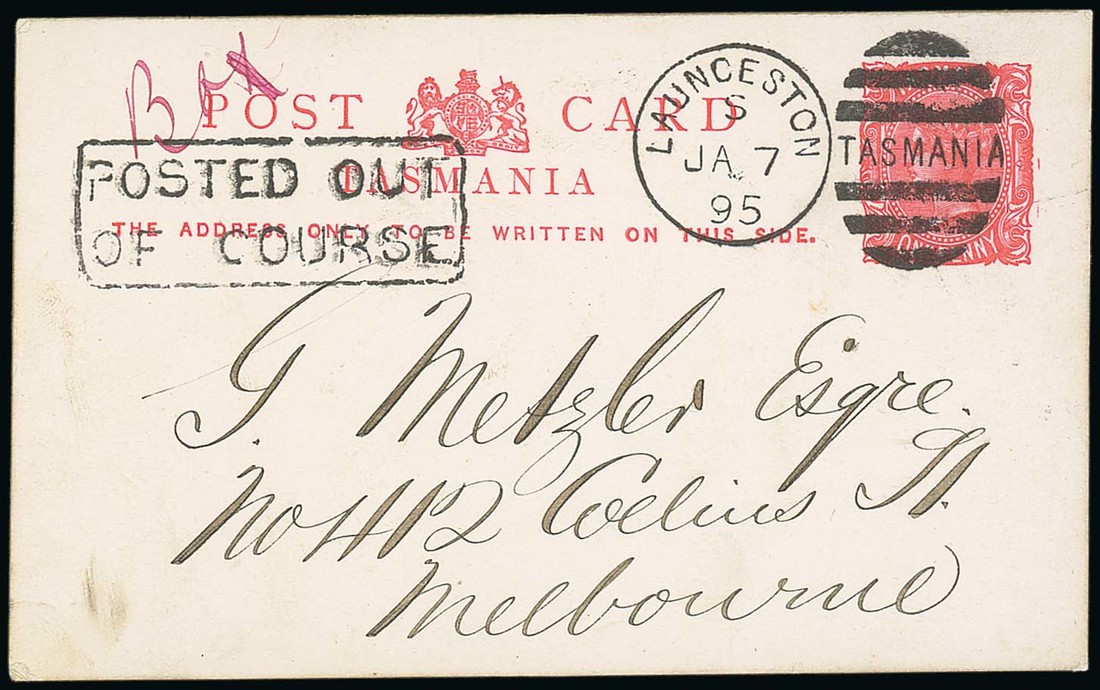 Box
POST CARD
TASMANIA
THE ADDRESS ONLY TO BE WRITTEN ON THIS SIDE.
POSTED OUT
OF COURSE
LAUNCESTON
S
JA 7
95
TASMANIA
ONE PENNY
G Metzler Esqre.
No 412 Collins St.
Melbourne